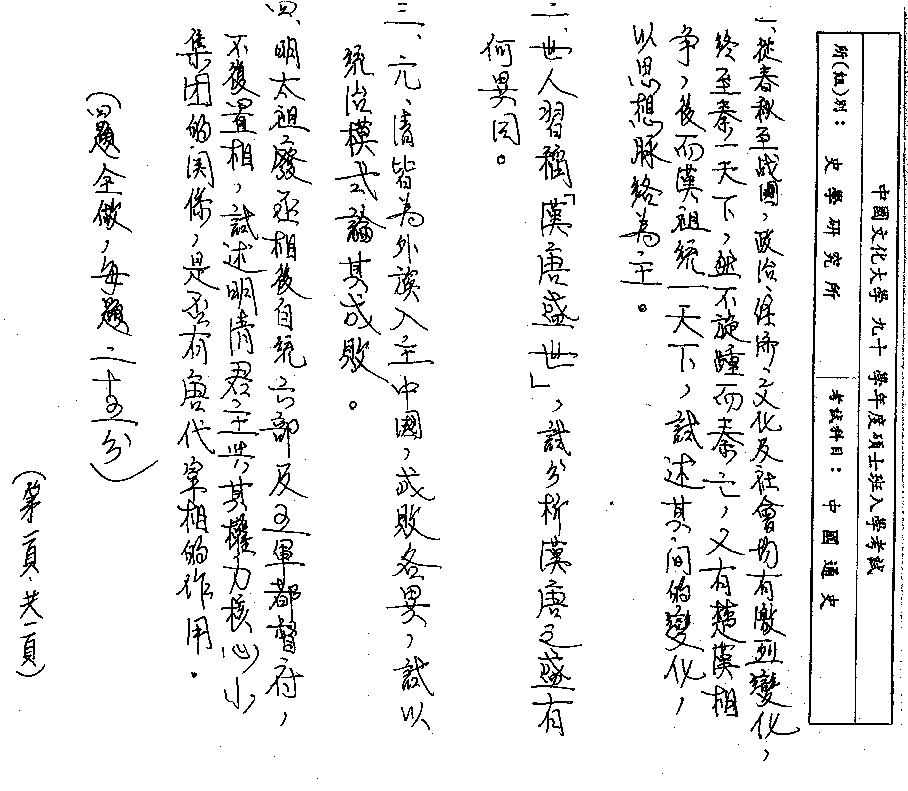 中國文化大學 九十 學年度碩士班入學考試
所(組)別： 史學研究所 考試科目： 中國通史
一、從春秋至战國，政治、經濟、文化及社會均有激烈變化，
終至秦一天下，然不旋踵而秦亡，又有楚漢相
争，後而漢祖統一天下，試述其间的變化，
以思想脉絡為主。
二、世人習稱「漢唐盛世」，試分析漢唐之盛有
何異同。
三、元、清皆為外族入主中國，成敗各異，試以
統治模式論其成敗。
四、明太祖廢丞相後自統六部及五軍都督府，
不復置相，試述明清君主与其權力核心小
集团的関係，是否有唐代宰相的作用。
(四題全做，每題二十五分)
(第一頁·共一頁)